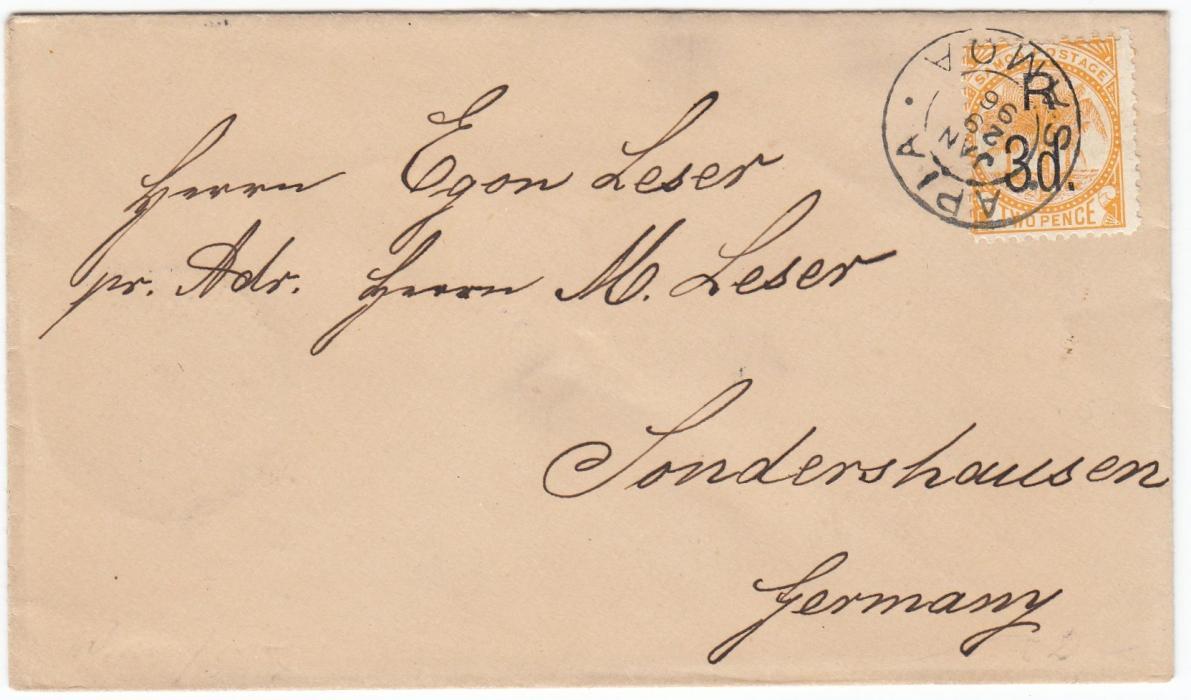 SAMOA POSTAGE
R
3d.
TWO PENCE
APIA. SAMOA
JAN
26
96
Herrn Egon Leser
pr. Adr. Herrn M. Leser
Sondershausen
Germany